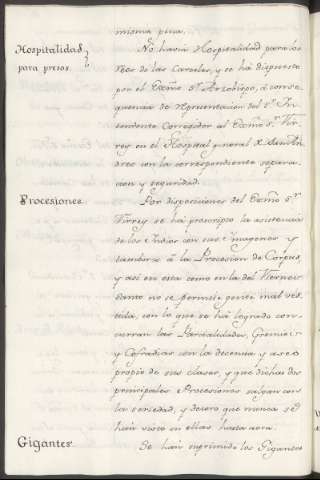 misma pena.
Hospitalidad
para presos.
No havia Hospitalidad para los
reos de las Carceles, y se há dispuesto
por el Exc̃mo S.r Arzobispo, á conse-
quencia de representacion del S.r In-
tendente Corregidor al Exc̃mo S.r Vir-
rey en el Hospital general de San An-
dres con la correspondiente separa-
cion y seguridad.
Procesiones.
Por disposiciones del Exc̃mo S.r
Virrey se há prescripto la asistencia
de los Indios con sus Imagenes y
tambien á la Procesion de Corpus,
y asi en esta como en la del Viernes
Santo no se permite gente mal ves-
tida, con lo que se há logrado con-
curran las Parcialidades, Gremios
y Cofradias con la decencia y aseo
propio de sus clases, y que dichas dos
principales Procesiones salgan con
la seriedad, y decoro que nunca se
han visto en ellas hasta aora.
Gigantes
Se han suprimido los Gigantes